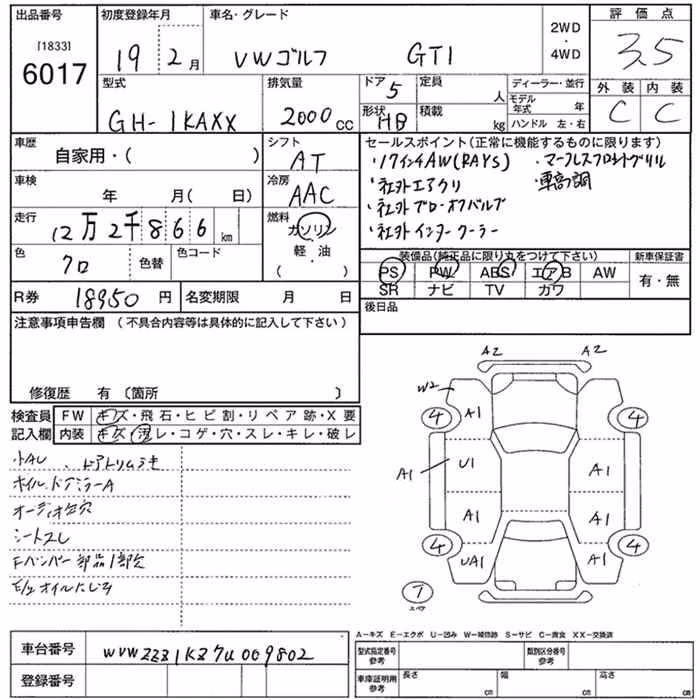 出品番号 初度登録年月 車名・グレード 評価点
[1833] 6017 19 2月 VWゴルフ GTI 2WD・4WD 3.5
型式 排気量 ドア 5 定員 人 ディーラー・並行 外装 内装
GH-1KAXX 2000cc 形状 HB 積載 kg モデル年式 年 ハンドル 左・右 C C
車歴 自家用・( ) シフト AT セールスポイント(正常に機能するものに限ります)
・17インチAW(RAYS) ・マークレスフロントグリル
車検 年 月( 日) 冷房 AAC ・社外エアクリ ・車高調
・社外ブローオフバルブ
走行 12万2千866km 燃料 ガソリン ・社外インタークーラー
軽・油
( )
色 クロ 色替 色コード 装備品(純正品に限り丸をつけて下さい) 新車保証書
PS PW ABS エアB AW 有・無
R券 18950円 名変期限 月 日 SR ナビ TV カワ
注意事項申告欄 (不具合内容等は具体的に記入して下さい) 後日品
修復歴 有 (箇所 )
検査員 FW キズ・飛石・ヒビ割・リペア跡・X要
記入欄 内装 キズ・汚レ・コゲ・穴・スレ・キレ・破レ
小AU 、ドアトリムうき
ホイル、ドアミラーA
オーディオ欠穴
シートスレ
Fバンパー部品1部欠
E/gオイルにじみ
A2 A2
W2
4 A1 4
A1 U1 A1
A1 A1
4 UA1 A1 4
7
スペア
A-キズ E-エクボ U-凹み W-補修跡 S-サビ C-腐食 XX-交換済
車台番号 WVWZZZ1KZ7U009802 型式指定番号 参考 類別区分番号 参考
登録番号 車庫証明用 参考 長さ cm 幅 cm 高さ cm